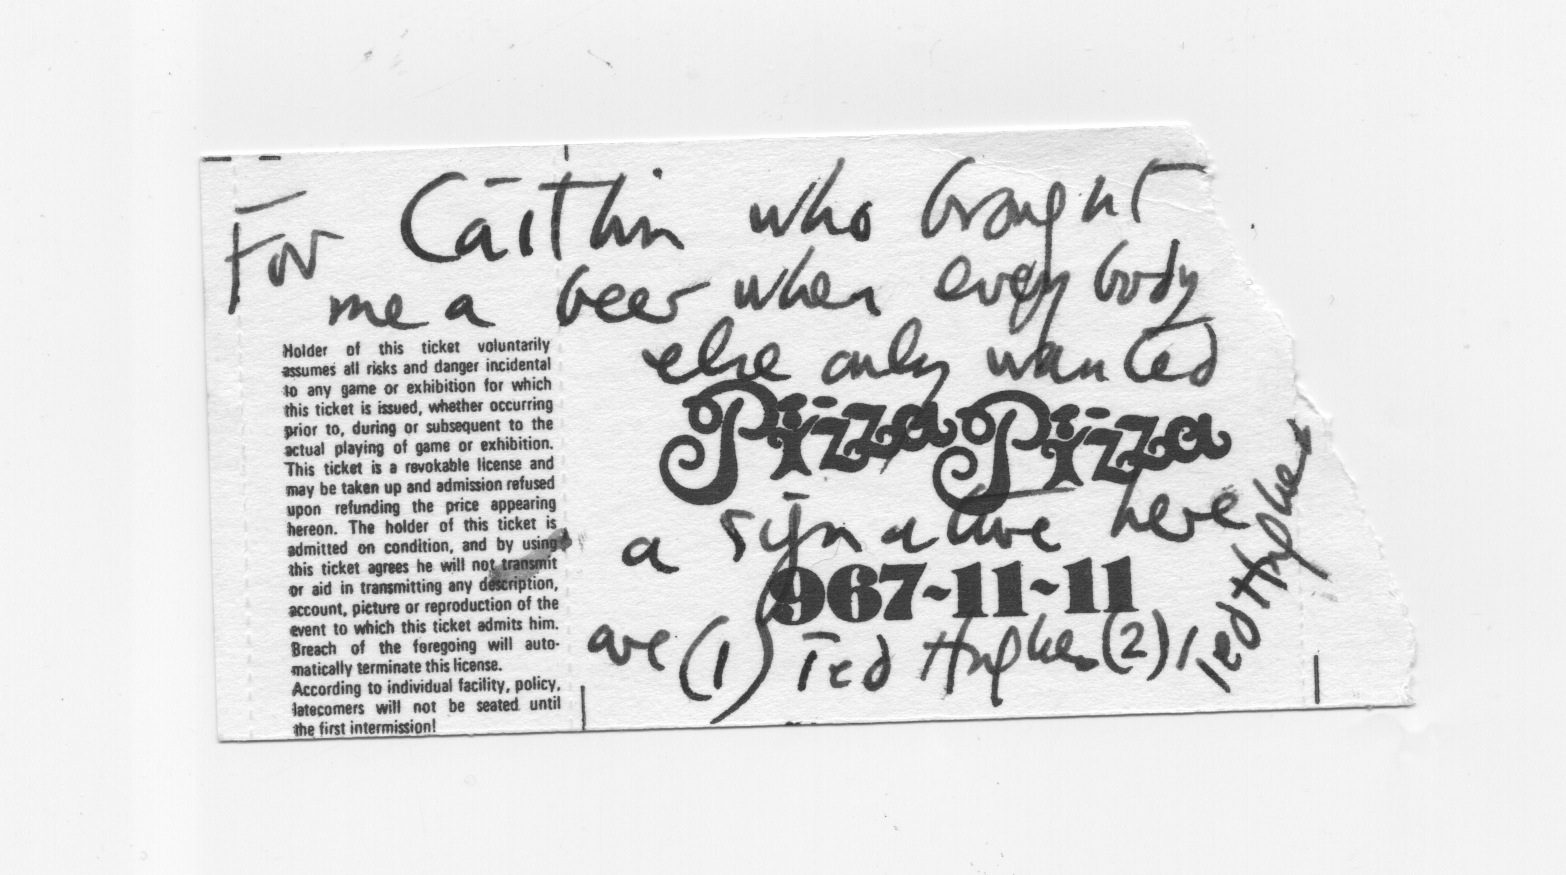 For Caitlin who brought
me a beer when every body
else only wanted
Pizza Pizza
a signature here
967-11-11
are (1) Ted Hughes (2) Ted Hughes
Holder of this ticket voluntarily
assumes all risks and danger incidental
to any game or exhibition for which
this ticket is issued, whether occurring
prior to, during or subsequent to the
actual playing of game or exhibition.
This ticket is a revokable license and
may be taken up and admission refused
upon refunding the price appearing
hereon. The holder of this ticket is
admitted on condition, and by using
this ticket agrees he will not transmit
or aid in transmitting any description,
account, picture or reproduction of the
event to which this ticket admits him.
Breach of the foregoing will auto-
matically terminate this license.
According to individual facility, policy,
latecomers will not be seated until
the first intermission!